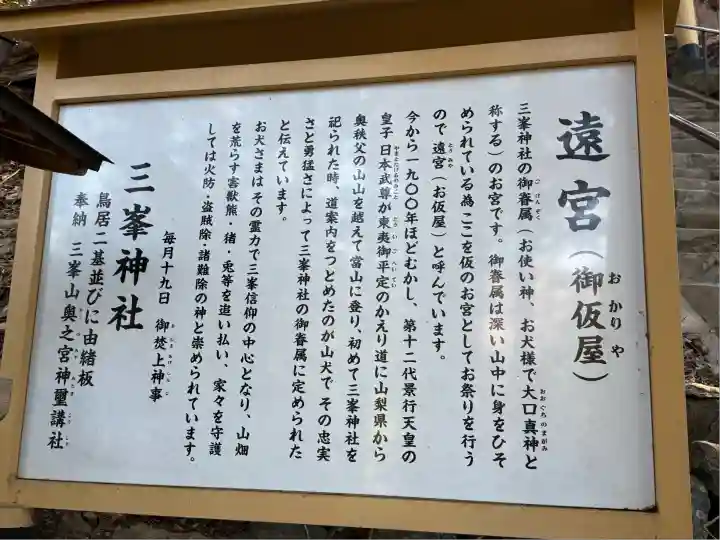 遠宮（御仮屋）
三峯神社の御眷属（お使い神、お犬様で大口真神と
称する）のお宮です。御眷属は深い山中に身をひそ
められている為ここを仮のお宮としてお祭りを行う
ので 遠宮（お仮屋）と呼んでいます。
今から一九〇〇年ほどむかし、第十二代景行天皇の
皇子 日本武尊が東夷御平定のかえり道に山梨県から
奥秩父の山山を越えて當山に登り、初めて三峯神社を
祀られた時、道案内をつとめたのが山犬で その忠実
さと勇猛さによって三峯神社の御眷属に定められた
と伝えています。
お犬さまは その霊力で三峯信仰の中心となり、山畑
を荒らす害獣熊・猪・兎等を追い払い、家々を守護
しては火防・盗賊除・諸難除の神と崇められています。
毎月十九日 御焚上神事
三峯神社
鳥居二基並びに由緒板
奉納 三峯山奥之宮神璽講社